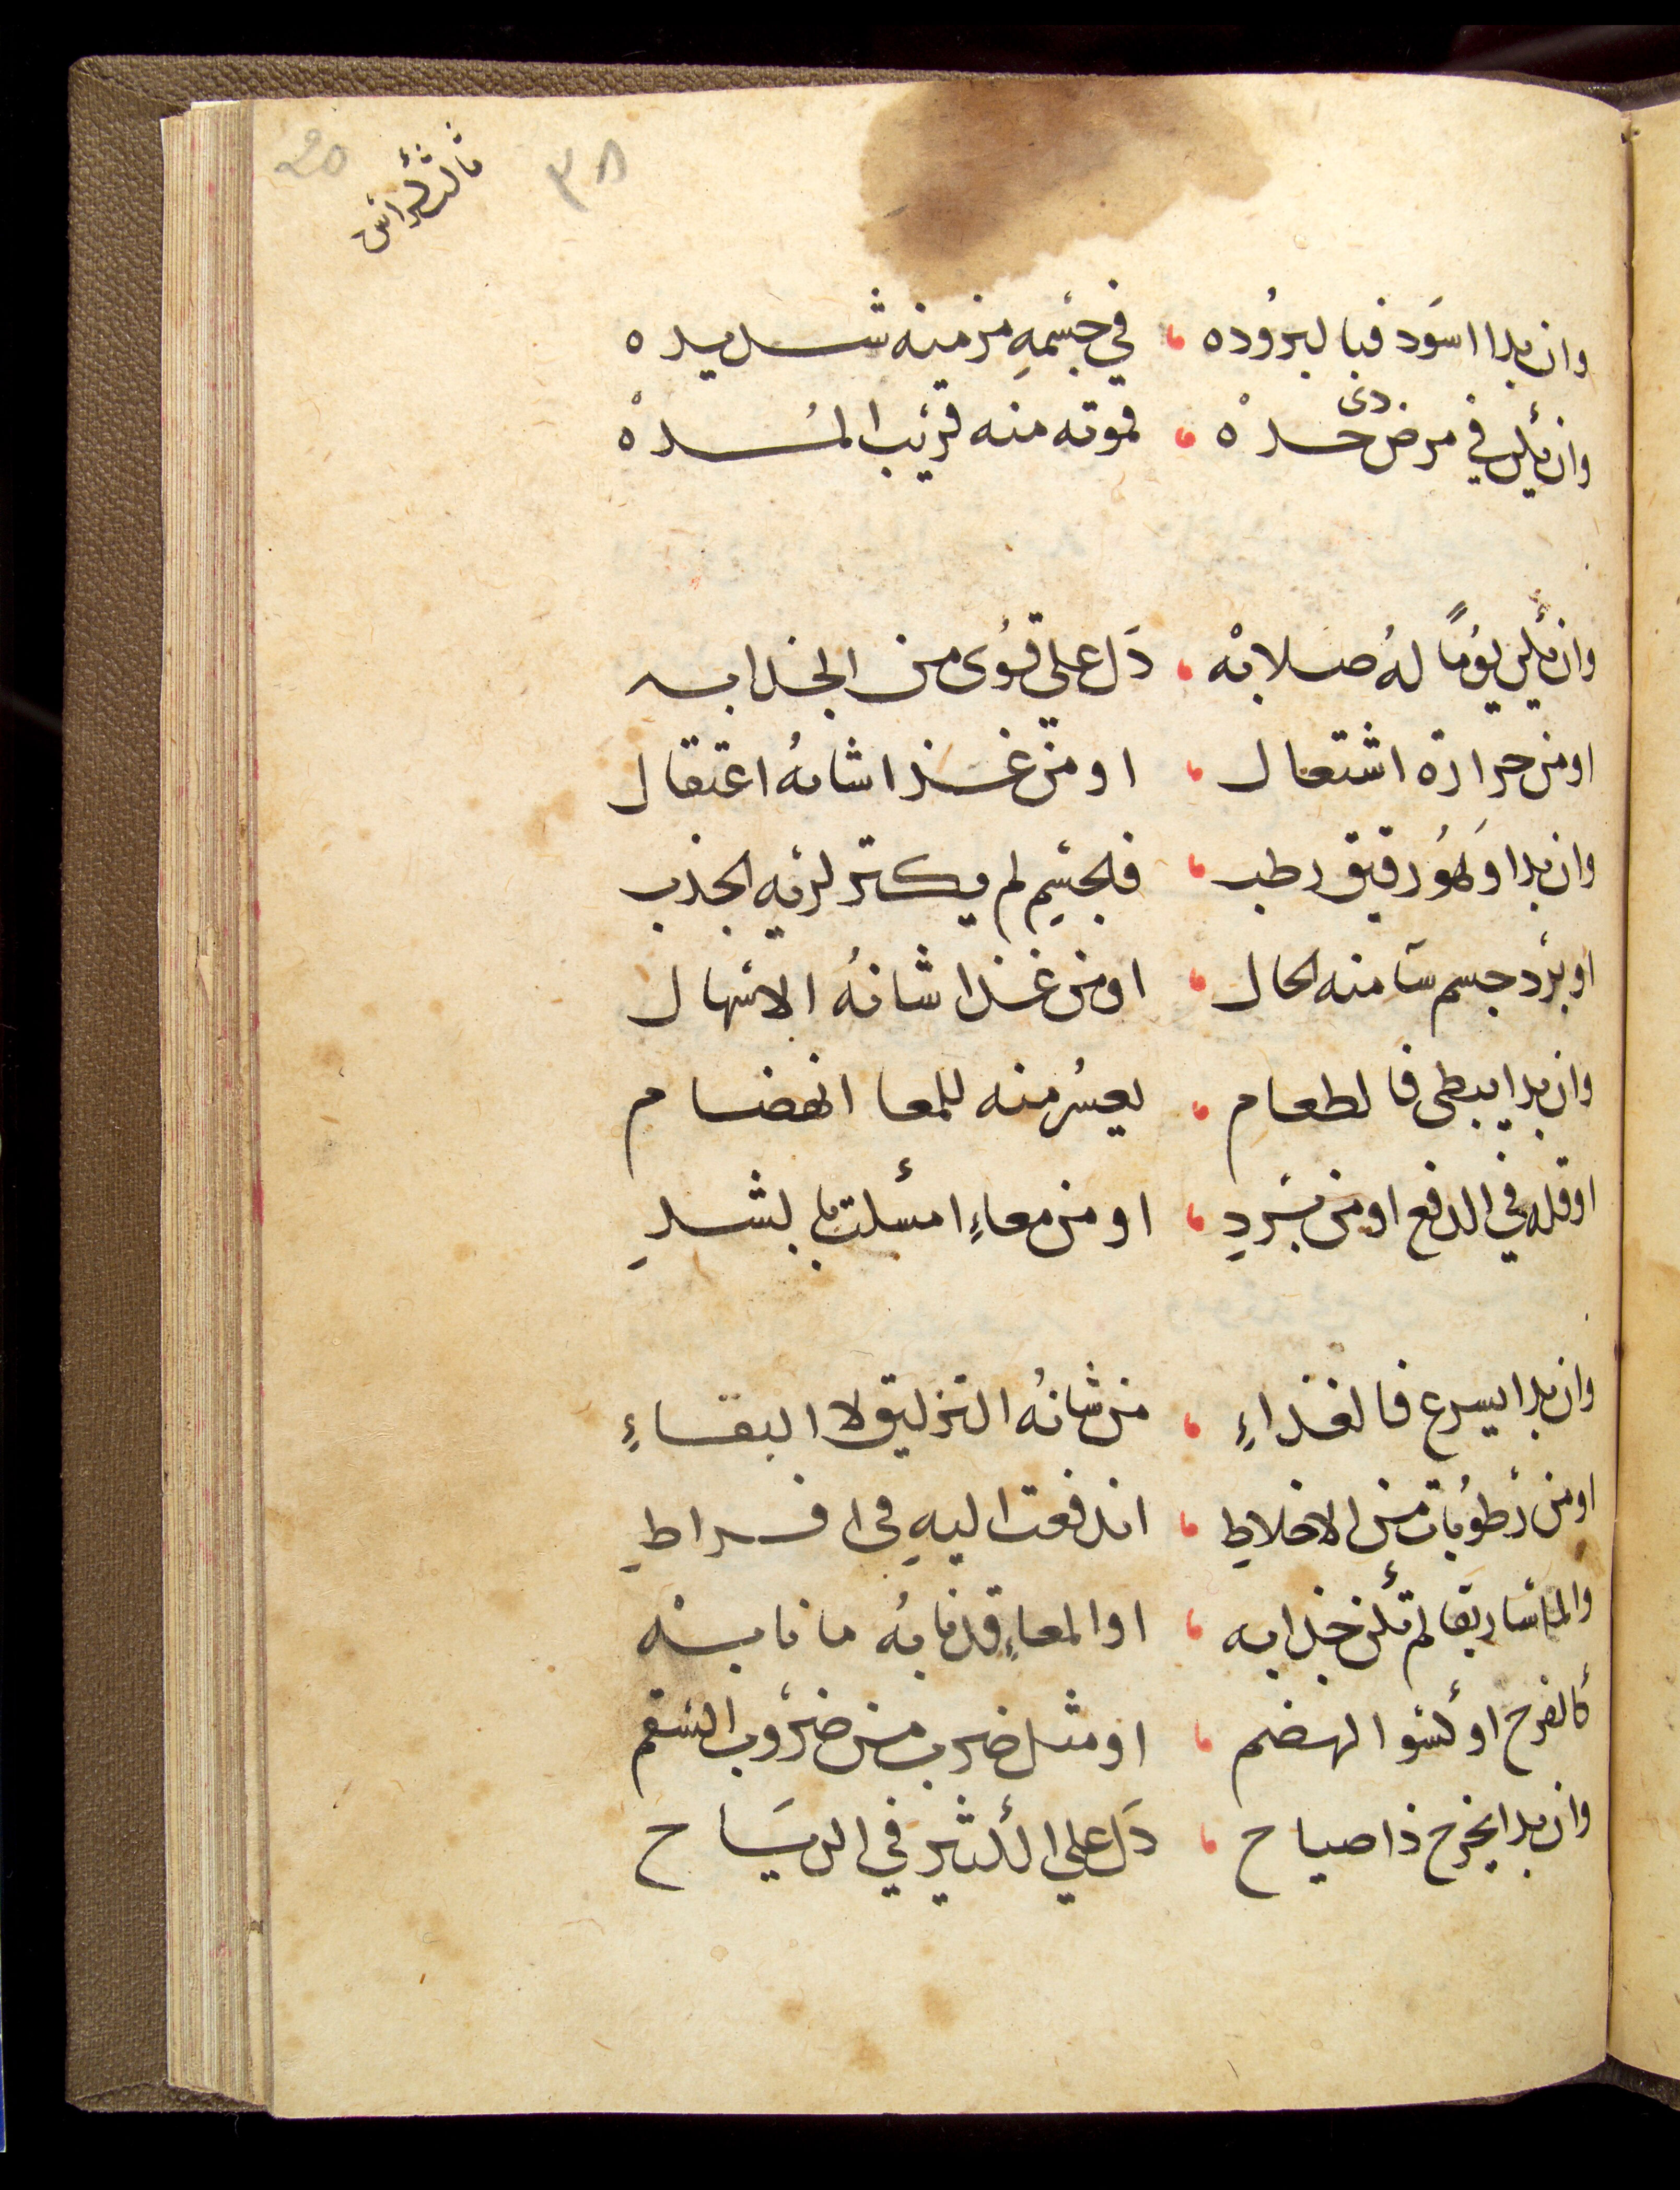 ثالث كراس
٣٨
وان بدا اسود فبالبروده في جسمه مزمنه شديده
وان يكن في مرض ذي حده فموته منه قريب المده
وان يكن يوما له صلابه دل على قوى من الجذابه
او من حرارة اشتعال او من غذا شانه اعتقال
وان بدا وهو رقيق رطب فلجسم لم يكثر لديه الجذب
او برد جسم سآ منه الحال او من غذا شانه الاسهال
وان بدا يبطى فالطعام يعسر منه للمعا انهضام
او قله في الدفع او من برد او من معاء امسكت بالشد
وان بدا يسرع فالغذاء من شانه التزليق لا البقاء
او من رطوبات من الاخلاط اندفعت اليه في افراط
والماساريقا لم تكن جذابه او المعاء قد نابه ما نابه
كالقرح او لسو الهضم او مثل ضرب من ضروب السقم
وان بدا يخرج ذا صياح دل على الكثير في الرياح